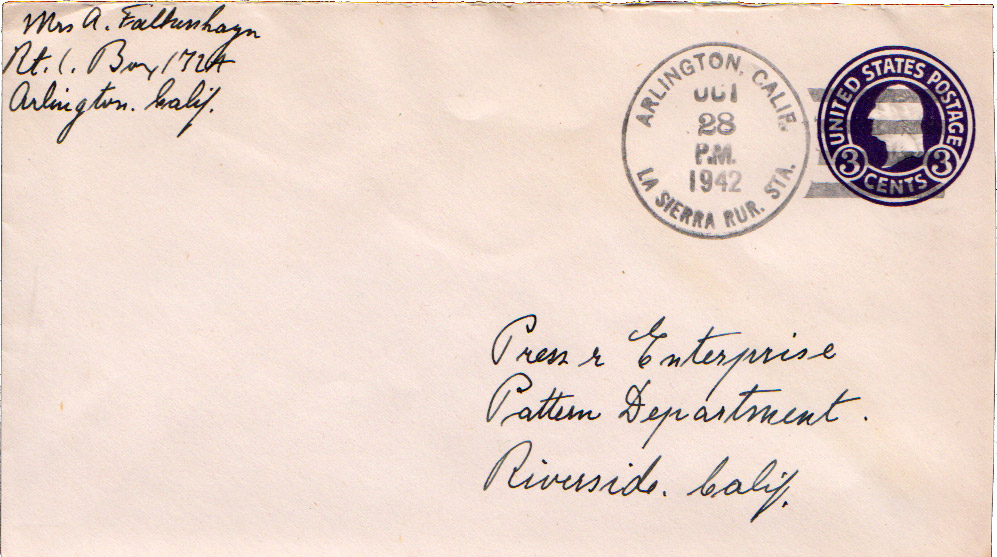 Mrs A. Falkenhayn
Rt. 1. Box 172A
Arlington. Calif.
ARLINGTON, CALIF.
OCT
28
P.M.
1942
LA SIERRA RUR. STA.
UNITED STATES POSTAGE
3 CENTS 3
Press & Enterprise
Pattern Department.
Riverside. Calif.